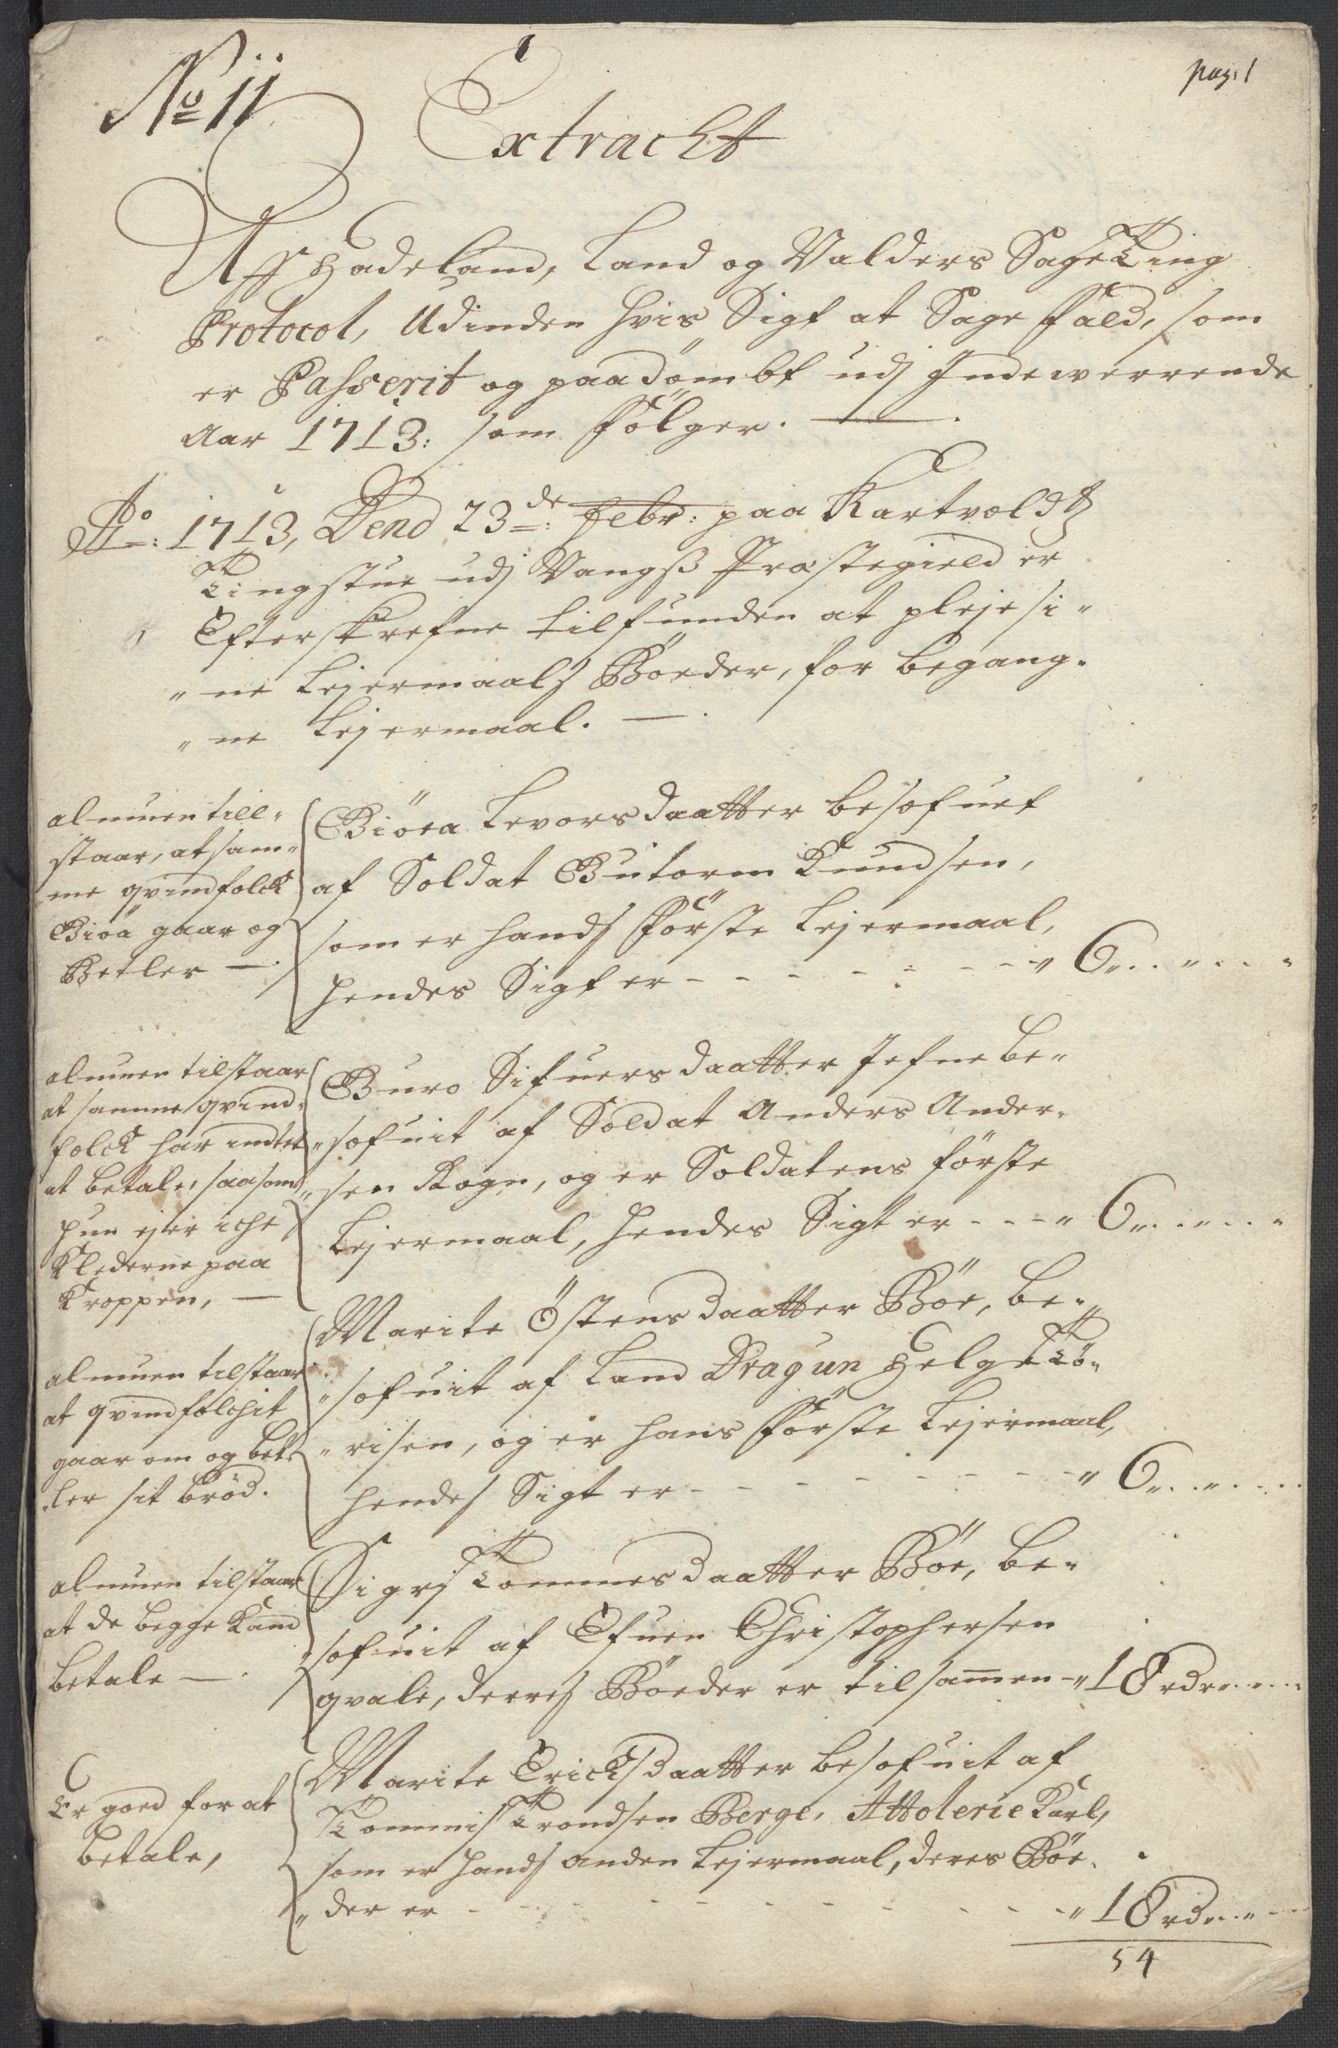 No 11
pag: 1
Extracht
Aff Hadeland, Land og Valders Sage Ting
Protocol, Udinden hvis Sigt at Sage fald, som
er Passerit og paadömbt udj Indewerrende
Aar 1713: som Fölger.
Ao: 1713, Dend 23de: febr: paa Kartvoldtz
Tingstue udj Vangß Præstegield er
Efterskrefne tilfunden at pleje si-
"ne Lejermaals Böeder, for begang-
"ne Lejermaal.
almuen till-
staar, at sam-
me qvindfolck
Biöa gaar og
Betler
Biöea Levorsdaatter besofuet
af Soldat Gutorm Knudsen,
som er hands Förste Lejermaal,
hendes Sigt er - - - " 6 " . . " . . .
almuen tilstaar
at samme qvind-
folck har indtet
at betale, saasom
hun ejer iche
Klederne paa
Kroppen,
Guro Sifuersdaatter Jefne be-
"sofuit af Soldat Anders Ander-
"sen Rogn, og er Soldatens förste
Lejermaal, hendes Sigt er - - - " 6 " . . " . . "
almuen tilstaar
at qvindfolchit
gaar om og bet-
"ler sit bröd.
Marite Östensdaatter Böe, be-
"sofuit af Land Dragun Helge Tö-
"risen, og er hans Förste Lejermaal,
hendes Sigt er - - - " 6 " . . " . . .
almuen tilstaar
at de begge Kand
betale
Sigrj Tommesdaatter Böe, be-
"sofuit af Efuen Christophersen
qvale, derres Böeder er tilsammen - " 18 rdr " . . .
Er goed for at
betale,
Marite Ericksdaatter besofuit af
Tommis Trondsen Berge, Attolerie Karl,
som er hands anden Lejermaal, deres Böe-
"der er - - - " 18 rdr " . . " . .
54